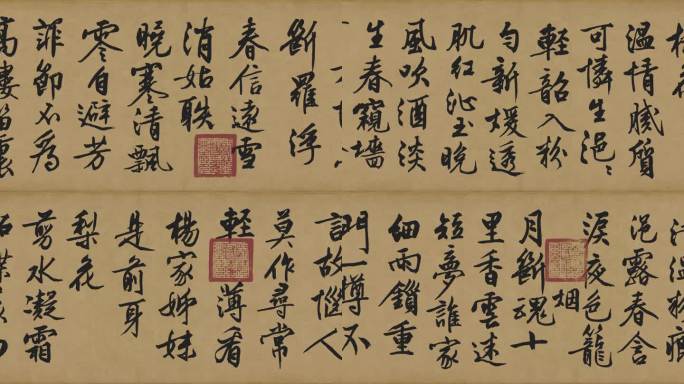 溫情膩質
可憐生浥〻
輕韶入粉
勻新煖透
肌紅沁玉晚
風吹酒淡
生春窺墻
斷羅浮
春信遠雪
消姑
曉寒清飄
零自避芳
菲節不為
高樓笛裏
汗溫粉痕
浥露春含
淚夜色籠
烟
月斷魂十
里香雲迷
短夢誰家
細雨鎖重
門一樽不
故惱人
莫作尋常
輕薄看
楊家姊妹
是前身
梨花
剪水凝霜